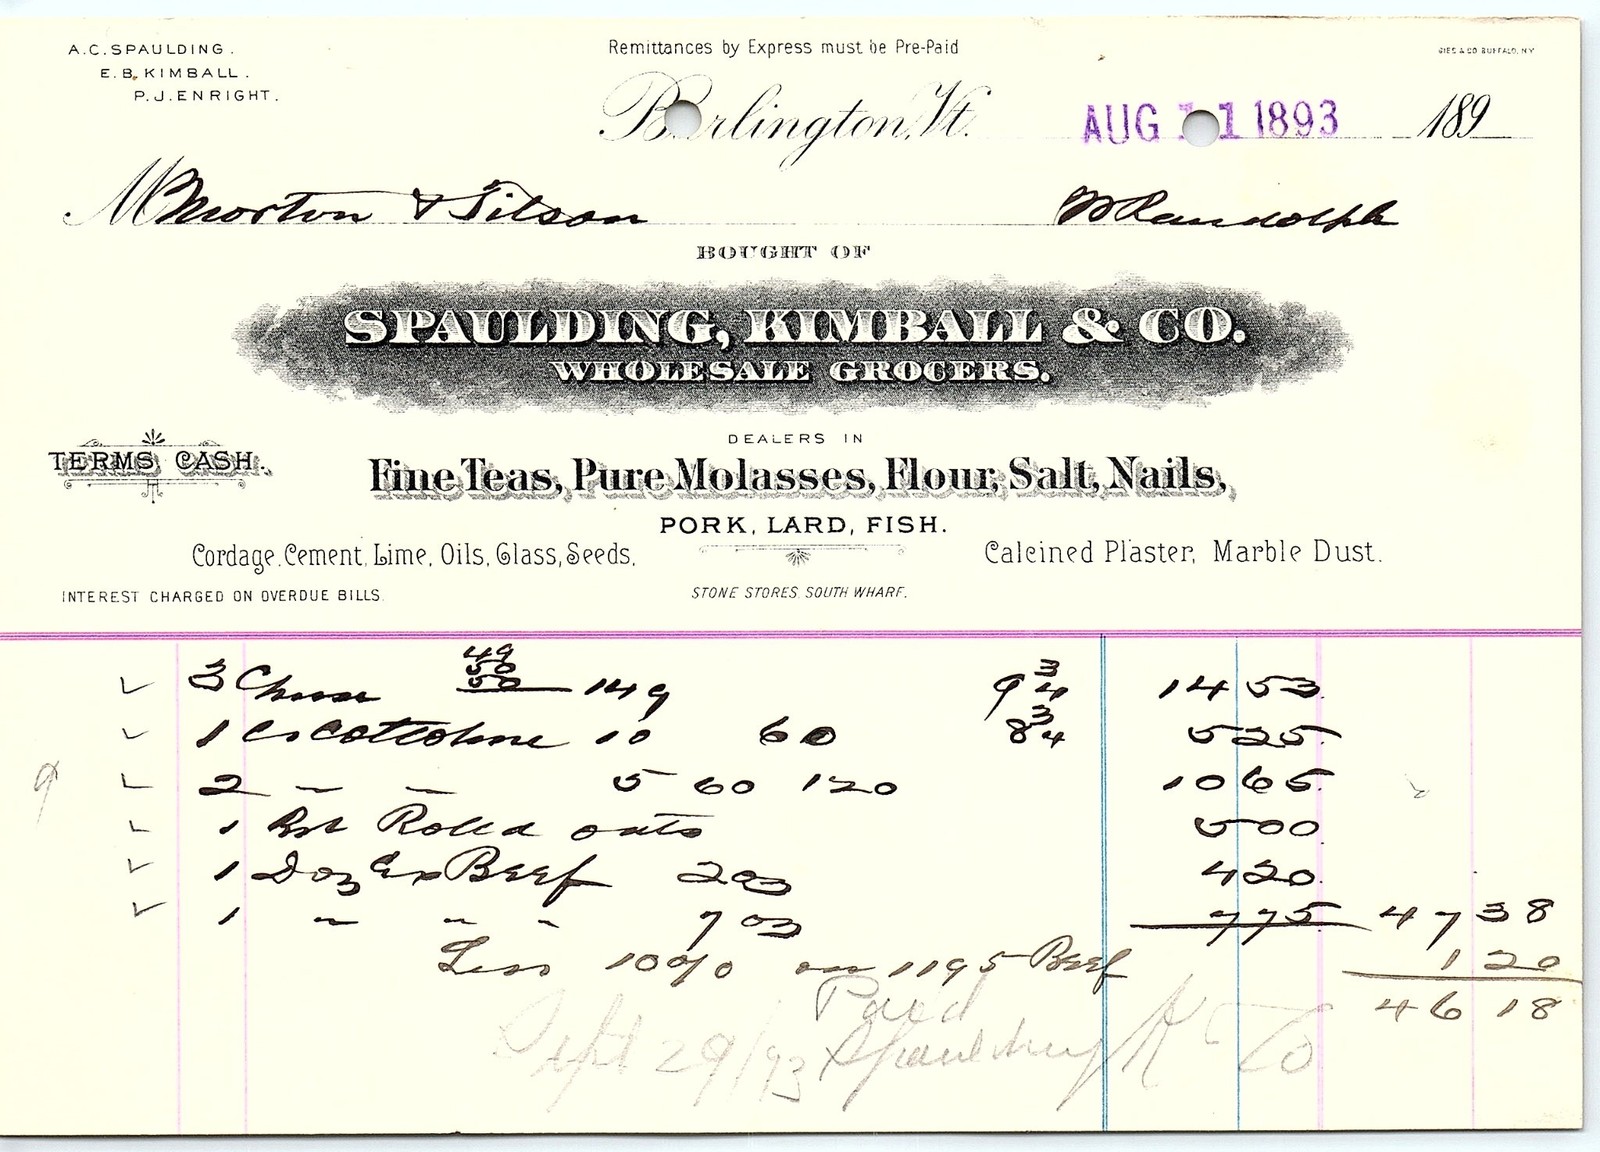 A.C. SPAULDING.
E.B. KIMBALL.
P.J. ENRIGHT.
Remittances by Express must be Pre-Paid
GIES & CO BUFFALO, N.Y.
Burlington, Vt. AUG 11 1893 189
M Morton & Tilson W Randolph
BOUGHT OF
SPAULDING, KIMBALL & CO.
WHOLESALE GROCERS.
DEALERS IN
TERMS CASH.
Fine Teas, Pure Molasses, Flour, Salt, Nails,
PORK, LARD, FISH.
Cordage, Cement, Lime, Oils, Glass, Seeds,
Calcined Plaster, Marble Dust.
INTEREST CHARGED ON OVERDUE BILLS.
STONE STORES, SOUTH WHARF.
49
50
3 Cheese 50 149 9 3/4 14 53
1 Cs Cottolene 10 60 8 3/4 5 25
2 " " 5 60 120 10 65
1 Rolled oats 5 00
1 Doz Ex Beef 2 oz 4 20
1 " " " 7 oz 7 75 47 38
Less 10% on 1195 Beef 1 20
46 18
Paid
Sept 29/93 Spaulding K Co